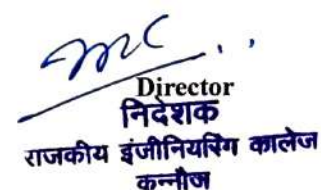 Director
निदेशक
राजकीय इंजीनियरिंग कालेज
कन्नौज